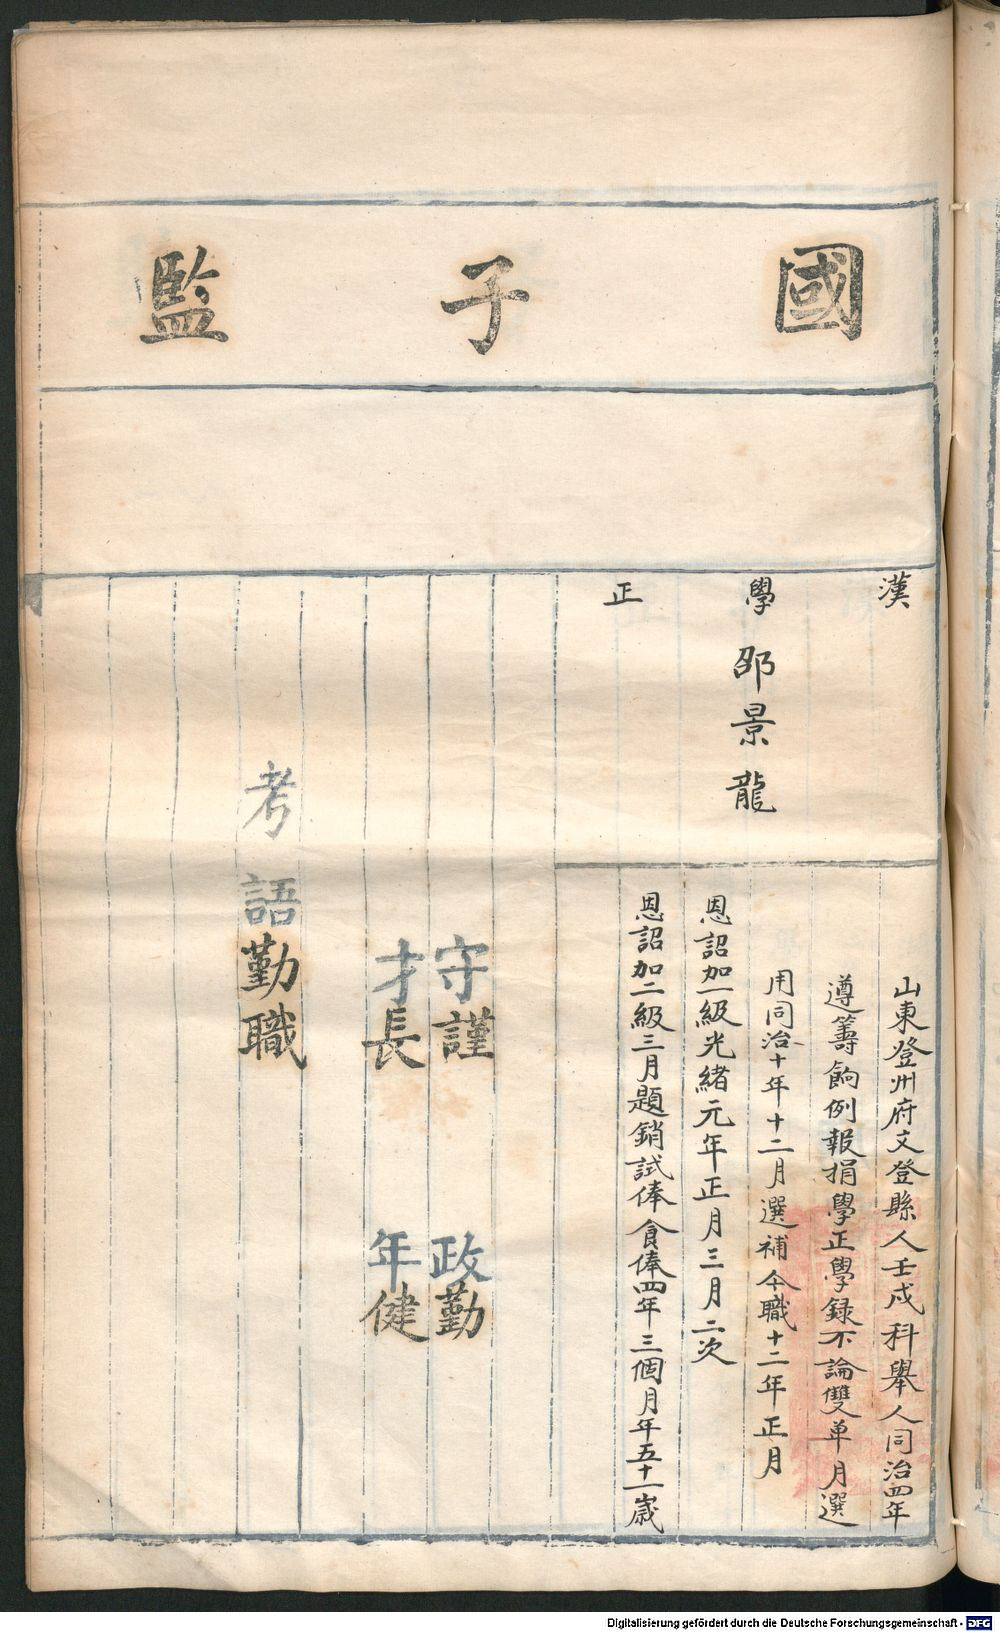 國子監
漢學正
邵景龍
山東登州府文登縣人壬戌科舉人同治四年
遵籌餉例報捐學正學録不論雙单月選
用同治十年十二月選補今職十二年正月
恩詔加一級光緒元年正月三月二次
恩詔加二級三月題銷試俸食俸四年三個月年五十一歲
守謹 政勤
才長 年健
考語勤職
Digitalisierung gefördert durch die Deutsche Forschungsgemeinschaft - DFG